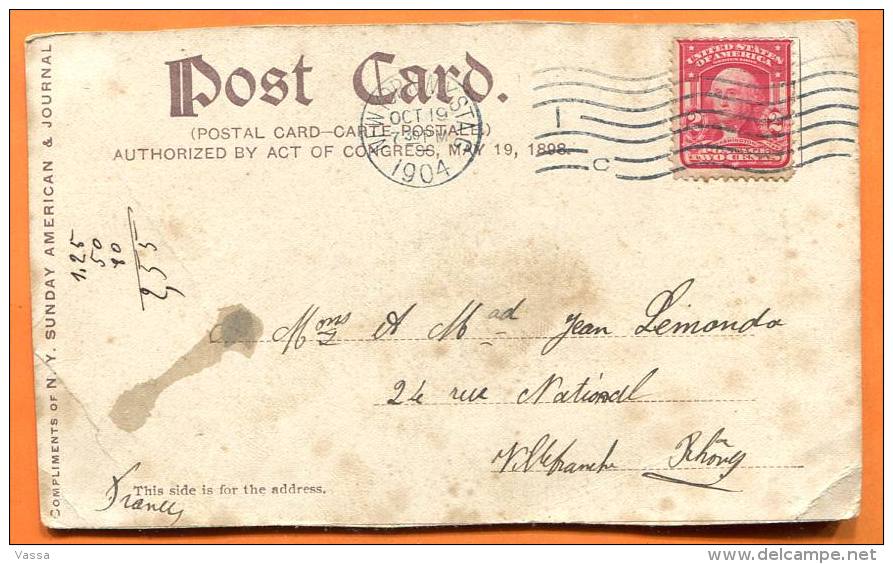 Post Card.
(POSTAL CARD—CARTE POSTALE.)
AUTHORIZED BY ACT OF CONGRESS, MAY 19, 1898.
OCT 19
1904
C
UNITED STATES
OF AMERICA
2 2
TWO CENTS
COMPLIMENTS OF N. Y. SUNDAY AMERICAN & JOURNAL
1.25
50
80
255
A Mad Jean Lemonda
24 rue National
Villefranche Rhône
This side is for the address.
France
Vassa
www.delcampe.net